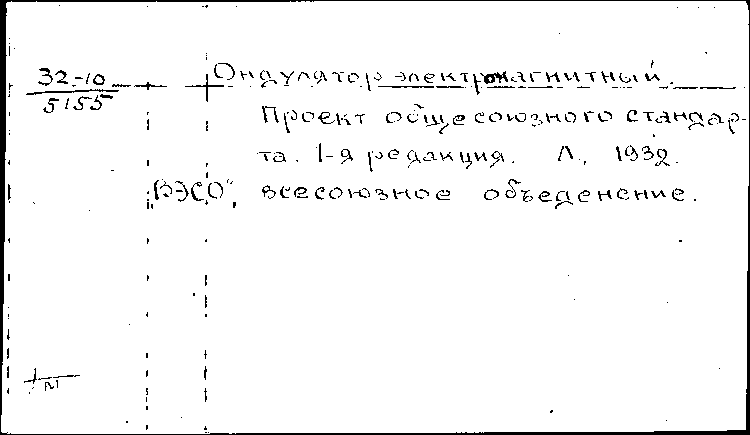 32-10
5155
Ондулятор электромагнитный.
Проект общесоюзного стандар-
та. 1-я редакция. Л., 1932.
„ВЭСО", всесоюзное объеденение.